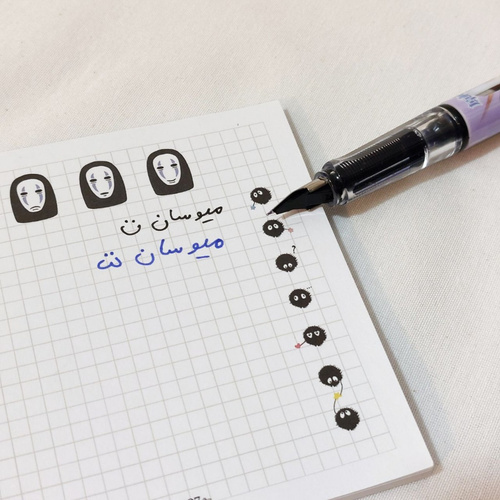 میوسان ت
میوسان ت
?